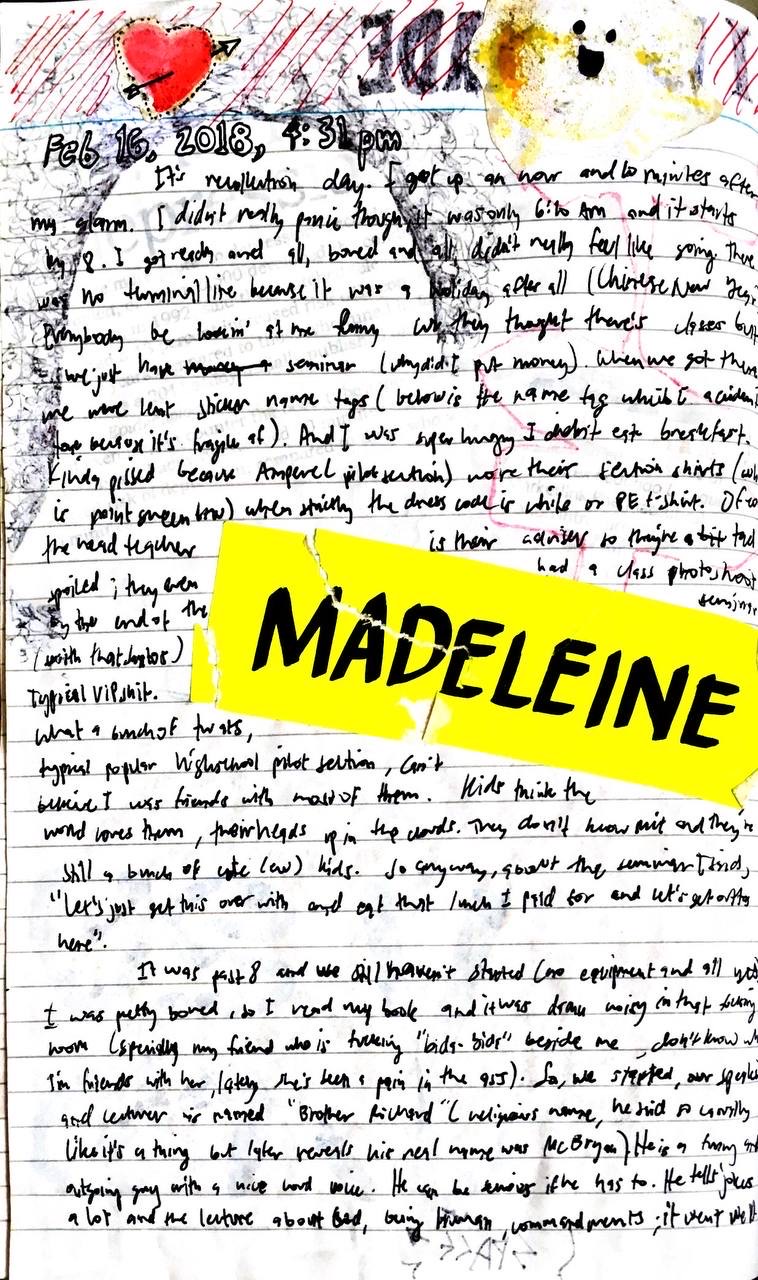 Feb 16, 2018, 4:31 pm
It's recollection day. I got up an hour and 10 minutes after
my alarm. I didn't really panic though, it was only 6:10 AM and it starts
by 8. I got ready and all, bored and all, didn't really feel like going. There
was no terminal line because it was a holiday after all (Chinese New Year)
Everybody be lookin' at me funny cuz they thought there's classes but
we just have seminar (why did I put money). When we got there
we were sticker name tags (below is the name tag which I accident
tore because it's fragile af). And I was super hungry I didn't eat breakfast.
Kinda pissed because Ampere (pilot section) wore their section shirts (wh
is point green btw) when strictly the dress code is white or PE t-shirt. Of co
the head teacher is their adviser so they're a bit tad
spoiled; they even had a class photoshoot
by the end of the seminar
(with that )
Typical VIP shit.
MADELEINE
What a bunch of twats,
typical popular highschool pilot section, can't
believe I was friends with most of them. Kids think the
world loves them, their heads up in the clouds. They don't know shit and they're
still a bunch of cute (ew) kids. So anyway, about the seminar I said,
"Let's just get this over with and eat that lunch I paid for and let's get outta
here".
It was past 8 and we still haven't started (no equipment and all yet)
I was pretty bored, so I read my book and it was damn noisy in that fucking
room (specially my friend who is fucking "bida-bida" beside me, don't know wh
I'm friends with her, lately she's been a pain in the ass). So, we started, our speaker
and lecturer is named "Brother Richard" (religious name, he said so casually
like it's a thing but later reveals his real name was McBryan). He is a funny and
outgoing guy with a nice loud voice. He can be serious if he has to. He tells jokes
a lot and the lecture about God, being human, commandments; it went well